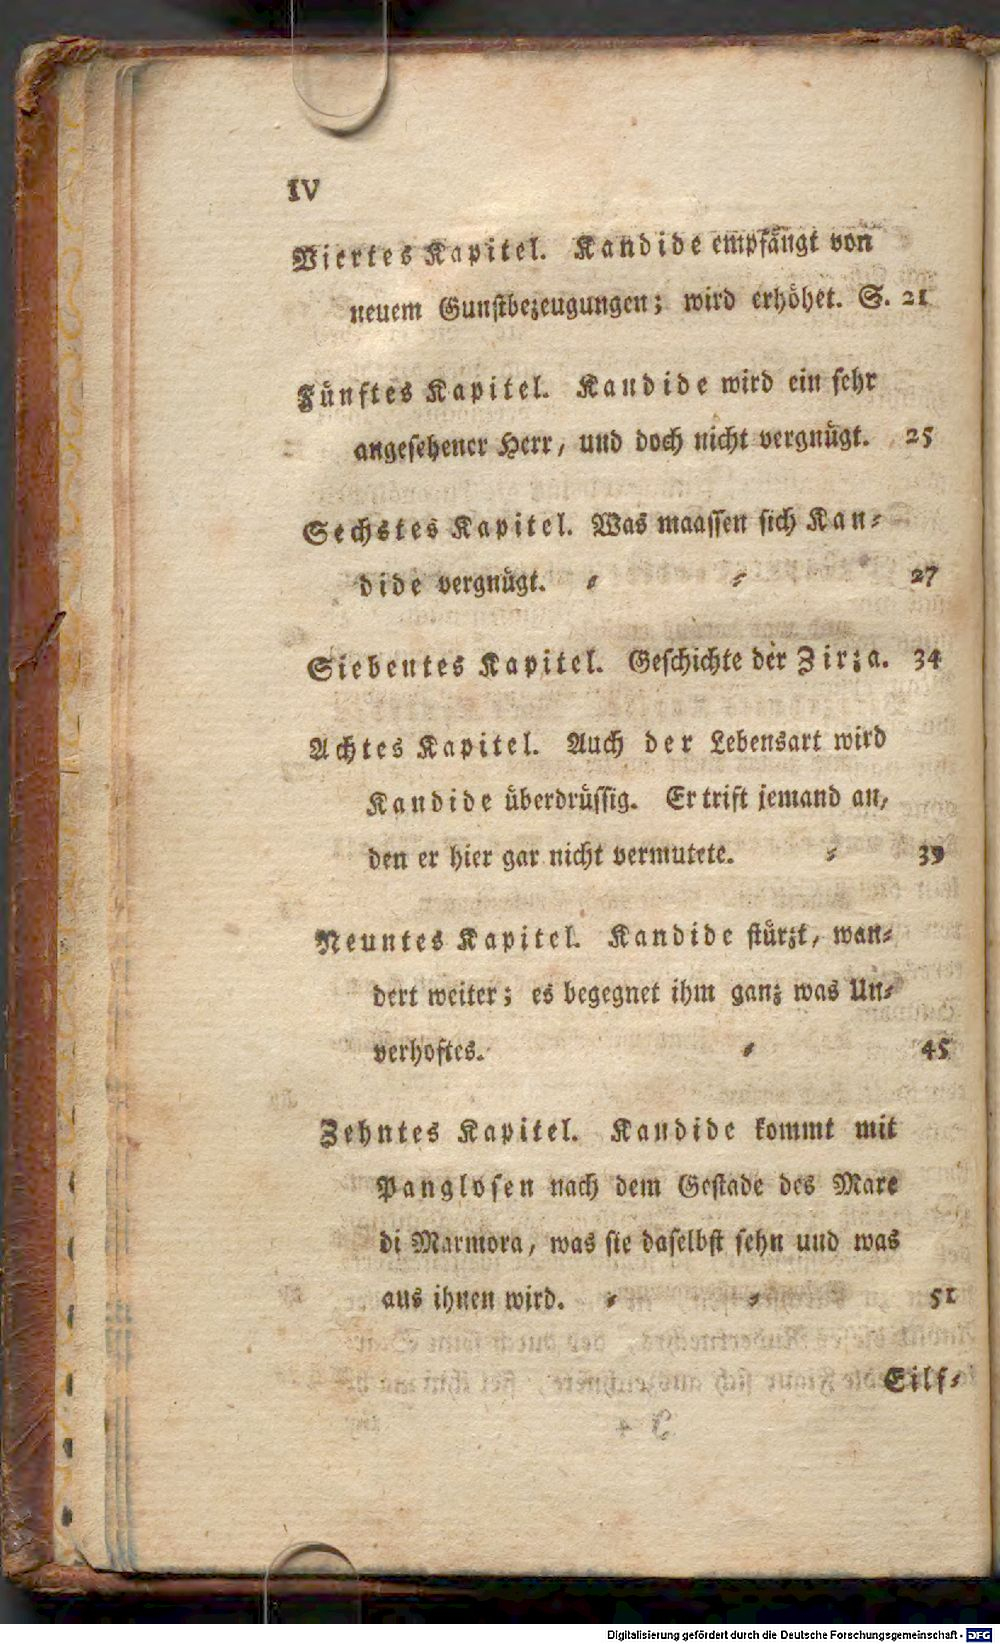 IV
Viertes Kapitel. Kandide empfängt von
neuem Gunstbezeugungen; wird erhöhet. S. 21
Fünftes Kapitel. Kandide wird ein sehr
angesehener Herr, und doch nicht vergnügt. 25
Sechstes Kapitel. Was maassen sich Kan-
dide vergnügt. - - 27
Siebentes Kapitel. Geschichte der Zirza. 34
Achtes Kapitel. Auch der Lebensart wird
Kandide überdrüssig. Er trift jemand an,
den er hier gar nicht vermutete. - 39
Neuntes Kapitel. Kandide stürzt, wan-
dert weiter; es begegnet ihm ganz was Un-
verhoftes. - 45
Zehntes Kapitel. Kandide kommt mit
Panglosen nach dem Gestade des Mare
di Marmora, was sie daselbst sehn und was
aus ihnen wird. - - 51
Eilf-
Digitalisierung gefördert durch die Deutsche Forschungsgemeinschaft - DFG